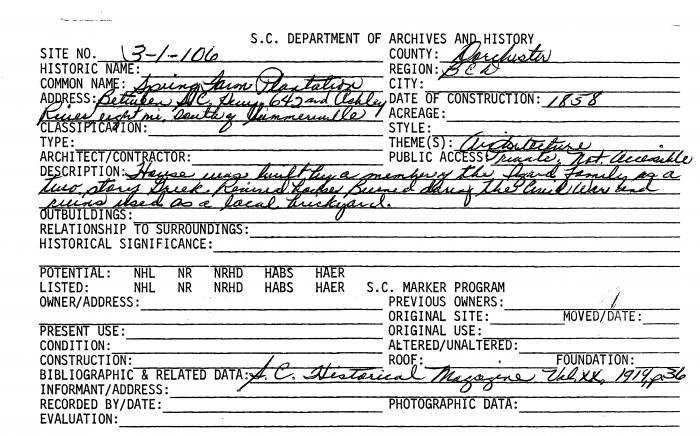 S.C. DEPARTMENT OF ARCHIVES AND HISTORY
SITE NO. 13-1-106 COUNTY: Dorchester
HISTORIC NAME: REGION: BCD
COMMON NAME: Spring Farm Plantation CITY:
ADDRESS: Between S.C. Hwy. 642 and Ashley DATE OF CONSTRUCTION: 1858
River eight mi. South of Summerville ACREAGE:
CLASSIFICATION: STYLE:
TYPE: THEME(S): Architecture
ARCHITECT/CONTRACTOR: PUBLIC ACCESS: Private, Not Accessible
DESCRIPTION: House was built by a member of the family as a
two, story Greek Revival house Burned during the Civil War and
ruins used as a local brickyard.
OUTBUILDINGS:
RELATIONSHIP TO SURROUNDINGS:
HISTORICAL SIGNIFICANCE:
POTENTIAL: NHL NR NRHD HABS HAER
LISTED: NHL NR NRHD HABS HAER S.C. MARKER PROGRAM
OWNER/ADDRESS: PREVIOUS OWNERS:
ORIGINAL SITE: MOVED/DATE:
PRESENT USE: ORIGINAL USE:
CONDITION: ALTERED/UNALTERED:
CONSTRUCTION: ROOF: FOUNDATION:
BIBLIOGRAPHIC & RELATED DATA: S.C. Historical Magazine Vol. XX, 1919, p. 36
INFORMANT/ADDRESS:
RECORDED BY/DATE: PHOTOGRAPHIC DATA:
EVALUATION: